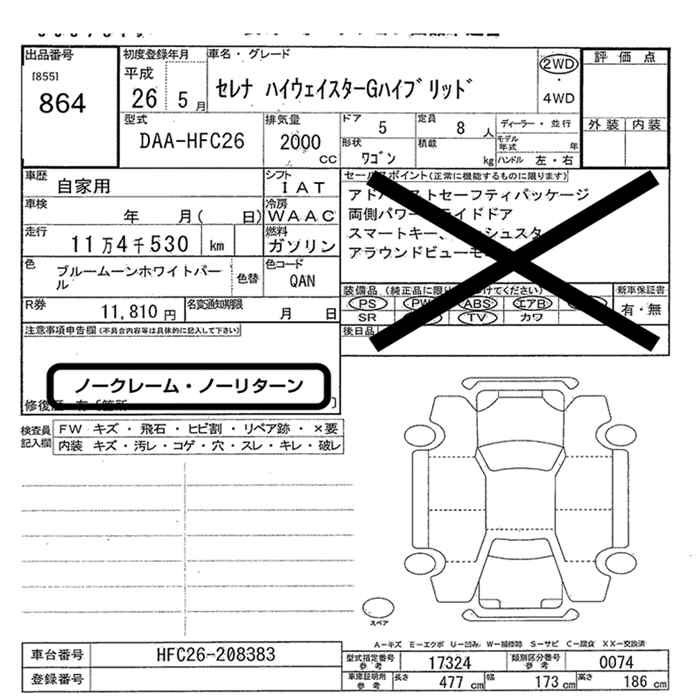 出品番号
[855]
864
初度登録年月
平成
26 5月
車名・グレード
セレナ ハイウェイスターGハイブリッド
2WD
4WD
評価点
外装 内装
型式
DAA-HFC26
排気量
2000
CC
ドア
5
定員
8 人
ディーラー・並行
モデル年式 年
形状
ワゴン
積載
kg
ハンドル 左・右
車歴
自家用
シフト
IAT
車検
年 月( 日)
冷房
WAAC
走行
11万4千530 km
燃料
ガソリン
色
ブルームーンホワイトパール
色替
色コード
QAN
R券
11,810 円
名変通知期限
月 日
セールスポイント(正常に機能するものに限ります)
両側パワー
スマートキー、
アラウンドビューモ
装備品
PS PW ABS エアB
SR TV カワ
新車保証書
有・無
後日品
注意事項申告欄(不具合内容等は具体的に記入して下さい)
ノークレーム・ノーリターン
検査員記入欄
FW キズ・飛石・ヒビ割・リペア跡・×要
内装 キズ・汚レ・コゲ・穴・スレ・キレ・破レ
スペア
A-キズ E-エクボ U-凹み W-補修跡 S-サビ C-腐食 XX-交換済
車台番号
HFC26-208383
登録番号
型式指定番号参考
17324
類別区分番号参考
0074
車庫証明用参考
長さ 477 cm 幅 173 cm 高さ 186 cm